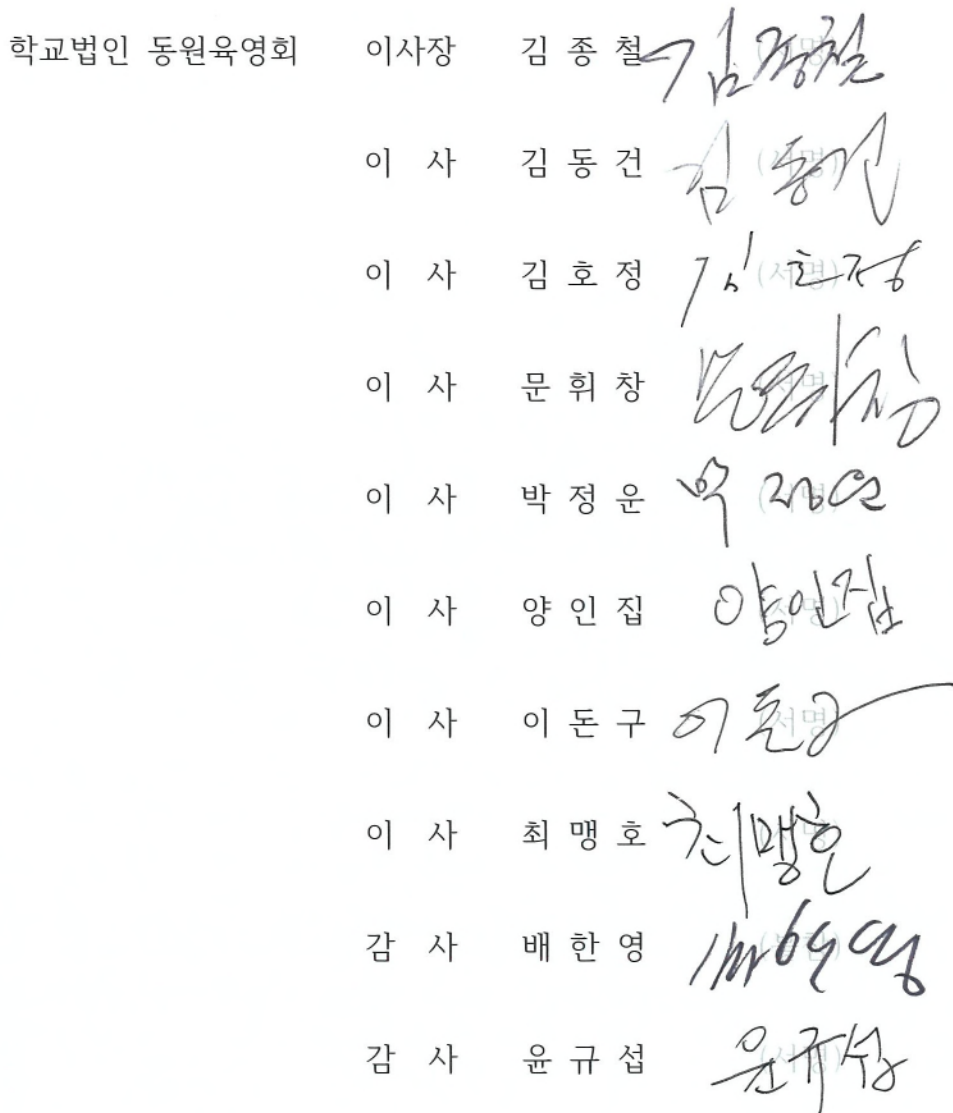 학교법인 동원육영회 이사장 김 종 철 (서명) 김종철
이 사 김 동 건 (서명) 김동건
이 사 김 호 정 (서명) 김호정
이 사 문 휘 창 (서명) 문휘창
이 사 박 정 운 (서명) 박정운
이 사 양 인 집 (서명) 양인집
이 사 이 돈 구 (서명) 이돈구
이 사 최 맹 호 (서명) 최맹호
감 사 배 한 영 배한영
감 사 윤 규 섭 (서명) 윤규섭